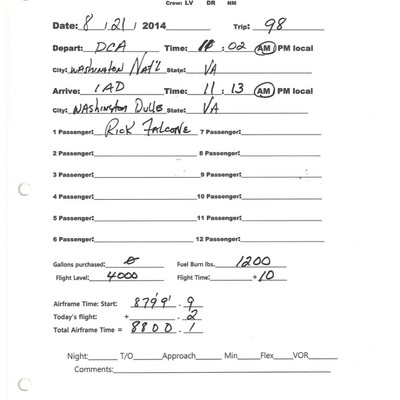 Crew: LV DR NM
Date: 8 / 21 / 2014 Trip: 98
Depart: DCA Time: : 02 AM PM local
City: Washington Nat'l State: VA
Arrive: IAD Time: 11 : 13 AM PM local
City: Washington Dulles State: VA
1 Passenger: Rick Falcone 7 Passenger:
2 Passenger: 8 Passenger:
3 Passenger: 9 Passenger:
4 Passenger: 10 Passenger:
5 Passenger: 11 Passenger:
6 Passenger: 12 Passenger:
Gallons purchased: 0 Fuel Burn lbs. 1200
Flight Level: 4000 Flight Time: +10
Airframe Time: Start: 8799 . 9
Today's flight: + . 2
Total Airframe Time = 8800 . 1
Night: T/O Approach Min Flex VOR
Comments: